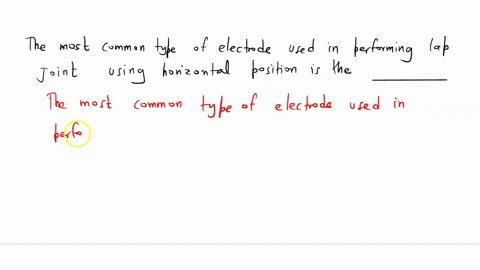 The most common type of electrode used in performing lap
joint using horizontal position is the ________
The most common type of electrode used in
perfo